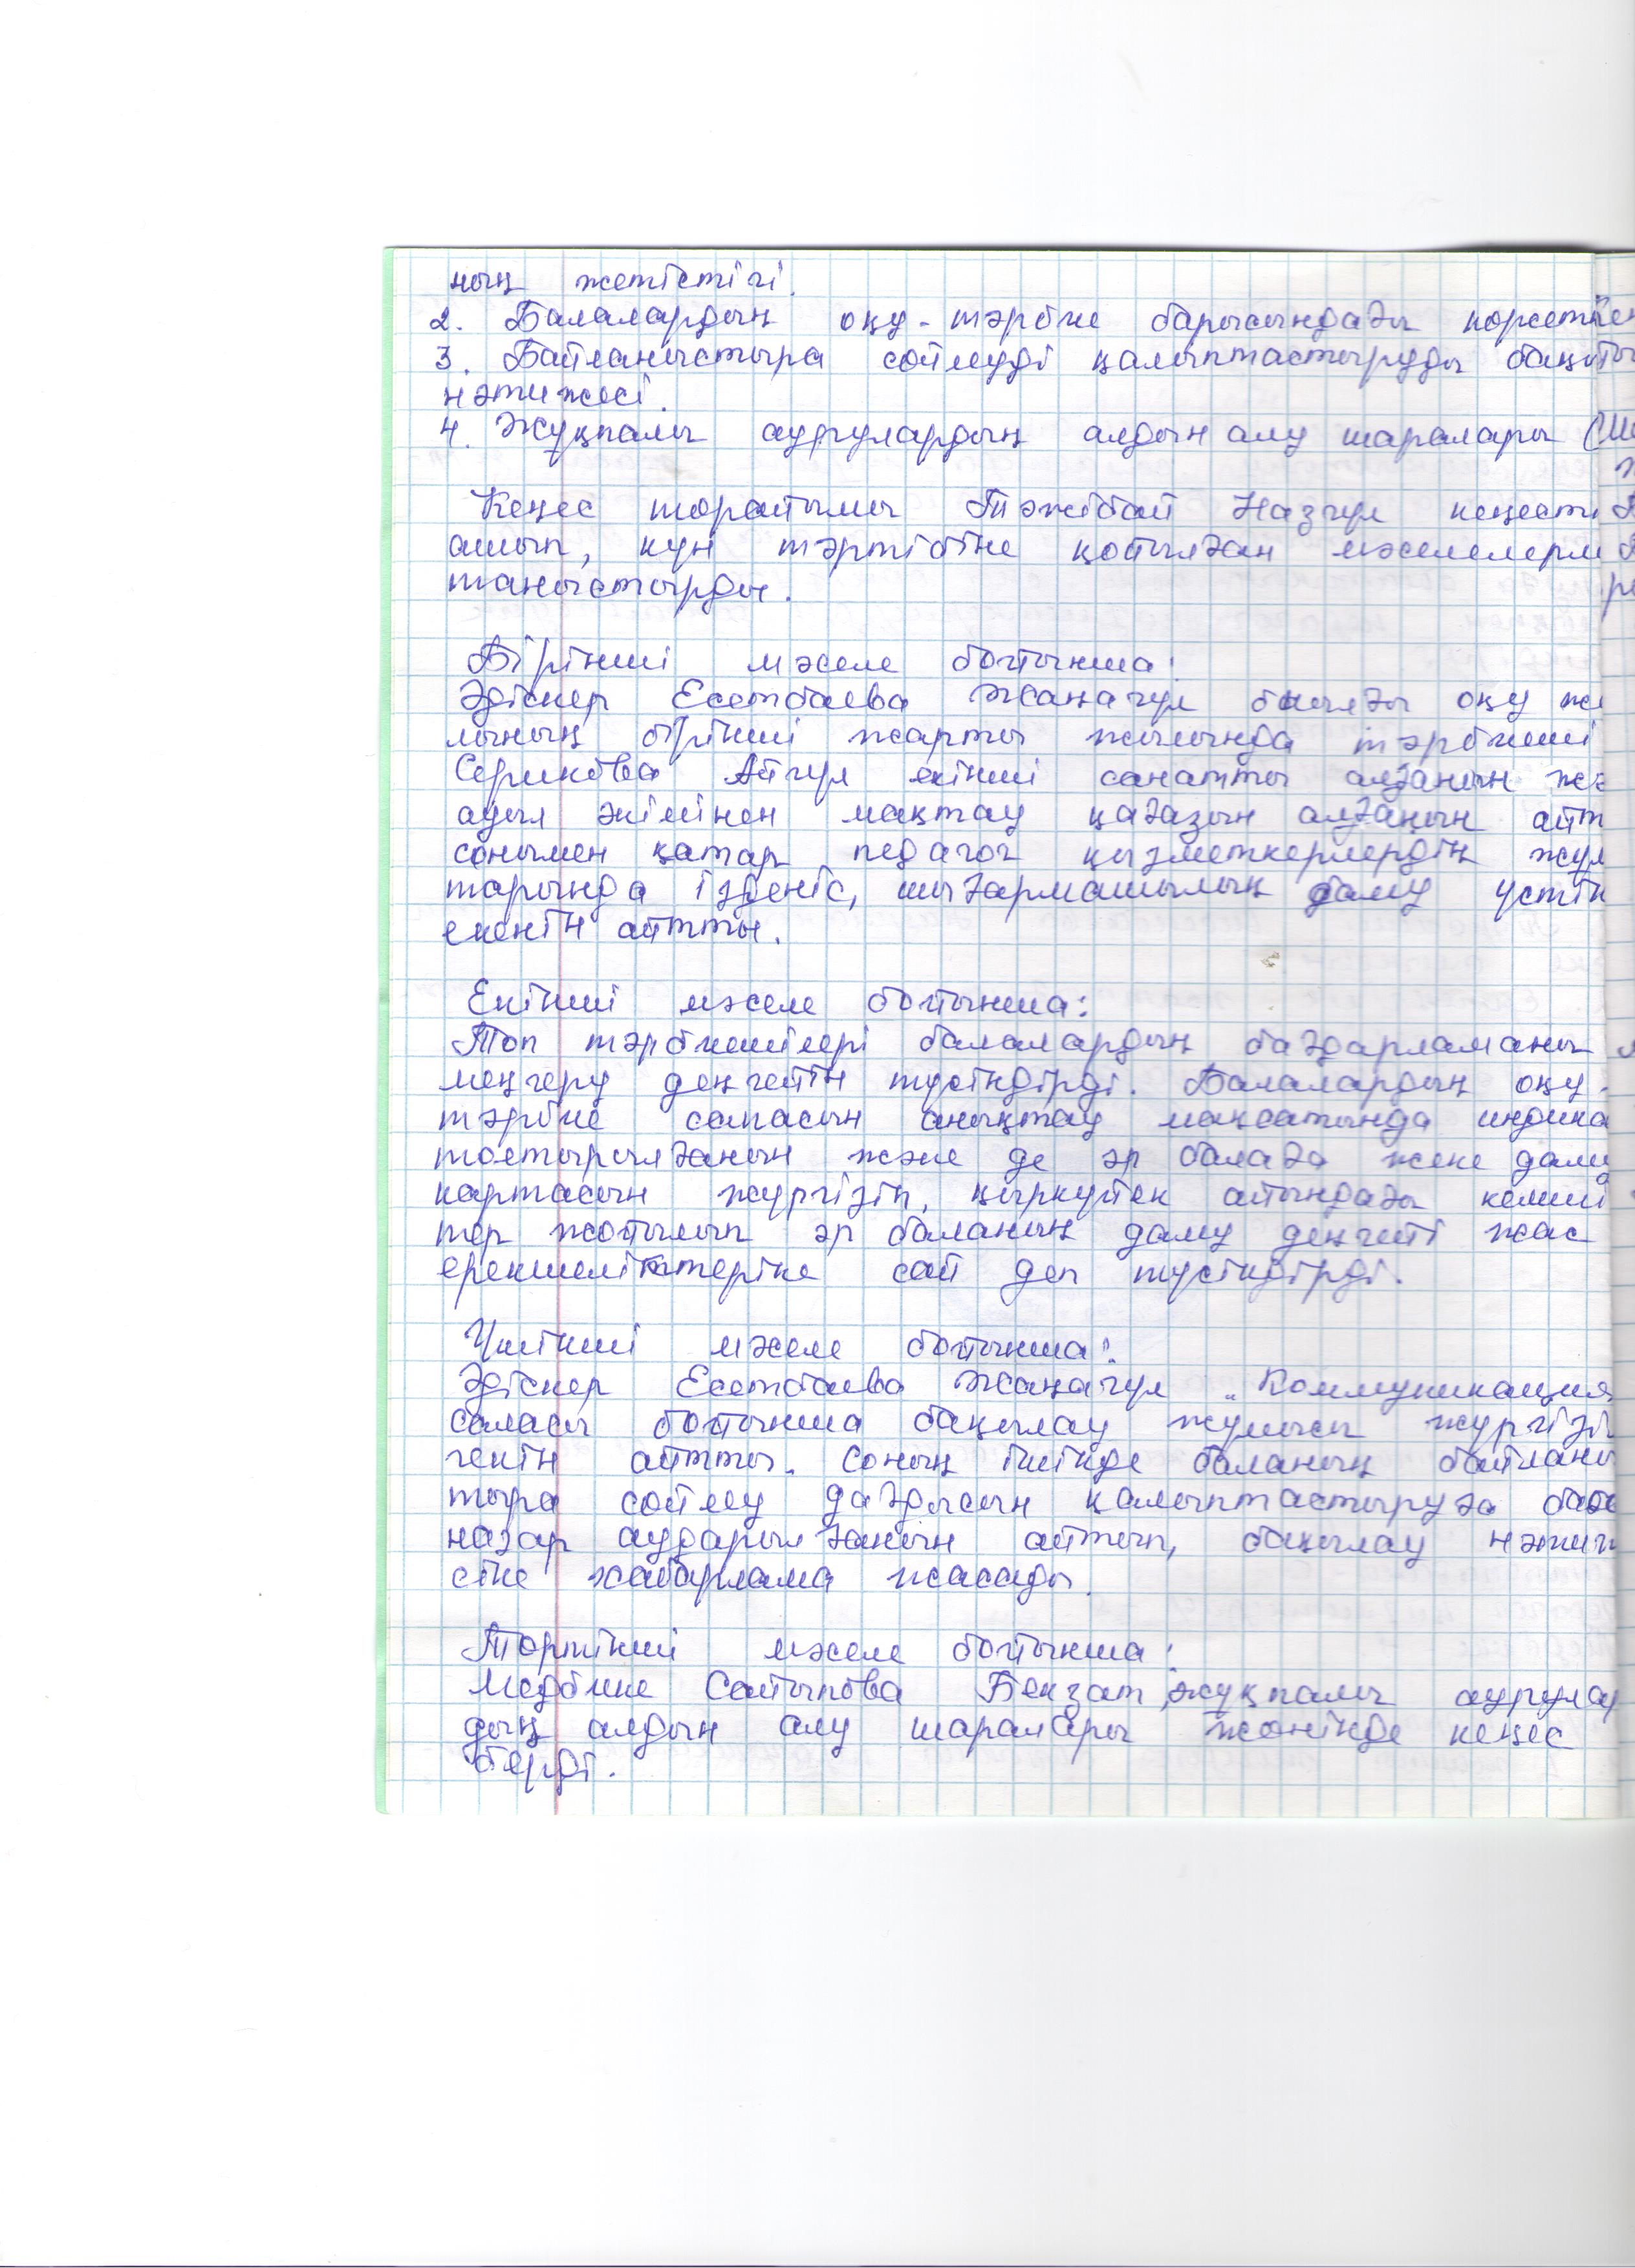 ның жетістігі.
2. Балалардың оқу-тәрбие барысындағы көрсеткен
3. Байланыстыра сөйлеуді қалыптастыруды бақы
нәтижесі.
4. Жұқпалы аурулардың алдын алу шаралары
Кеңес төрайымы Тәжібай Назгүл кеңесті
ашып, күн тәртібіне қойылған мәселелерм
таныстырды.
Бірінші мәселе бойынша:
Әдіскер Есетбаева Жаңагүл биылғы оқу жы
лының бірінші жарты жылында тәрбиеші
Серикова Айгул екінші санатты алғанын жә
ауыл әкімінен мақтау қағазын алғанын айт
сонымен қатар педагог қызметкерлердің жұм
тарында ізденіс, шығармашылық даму үстін
екенін айтты.
Екінші мәселе бойынша:
Топ тәрбиешілері балалардың бағдарламаны
меңгеру деңгейін түсіндірді. Балалардың оқу-
тәрбие сапасын анықтау мақсатында индика
толтырылғанын және де әр балаға жеке даму
картасын жүргізіп, қыркүйек айындағы кемші
тер жойылып әр баланың даму деңгейі жас
ерекшеліктеріне сай деп түсіндірді.
Үшінші мәселе бойынша:
Әдіскер Есетбаева Жаңагүл „Коммуникация
саласы бойынша бақылау жұмысы жүргізіл
генін айтты. Соның ішінде баланың байланы
тыра сөйлеу дағдысын қалыптастыруға баса
назар аударылғанын айтып, бақылау нәтиж
сіне хабарлама жасады.
Төртінші мәселе бойынша:
Медбике Сейтыпова Бекзат жұқпалы аурулар
дың алдын алу шаралары жөнінде кеңес
берді.